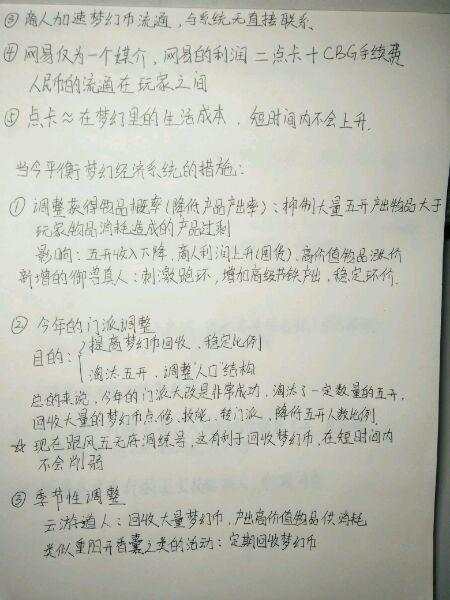 ③ 商人加速梦幻币流通，与系统无直接联系
④ 网易仅为一个媒介，网易的利润=点卡+CBG手续费
人民币的流通在玩家之间
⑤ 点卡≈在梦幻里的生活成本，短时间内不会上升.
当今平衡梦幻经济系统的措施：
① 调整获得物品概率(降低产品产出率)：抑制大量五开产出物品大于
玩家物品消耗造成的产品过剩
影响：五开收入下降，商人利润上升(囤货)，高价值物品涨价
新增的御兽真人：刺激跑环，增加高级书铁产出，稳定环价.
② 今年的门派调整
目的：{提高梦幻币回收，稳定比例
淘汰五开，调整人口结构
总的来说，今年的门派大改是非常成功，淘汰了一定数量的五开，
回收大量的梦幻币点修、技能、转门派，降低五开人数比例.
☆ 现在跟风五无底洞练号，这有利于回收梦幻币，在短时间内
不会削弱
③ 季节性调整
云游道人：回收大量梦幻币，产出高价值物品供消耗
类似重阳开香囊之类的活动：定期回收梦幻币